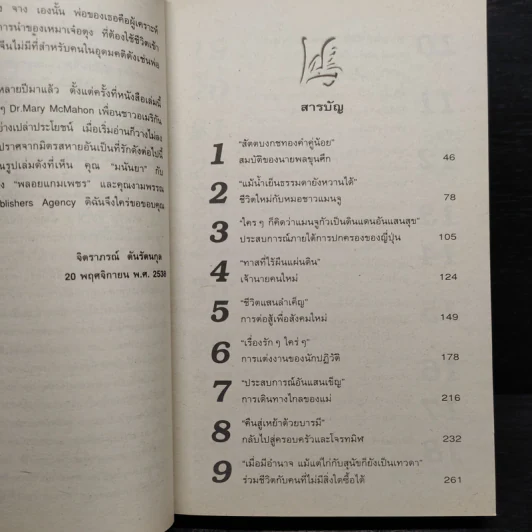 จาง เองนั้น พ่อของเธอคือผู้เคราะห์
การนำของเหมาเจ๋อตุง ที่ต้องใช้ชีวิตเจ้า
จีนไม่มีที่สำหรับคนในอุดมคติดังเช่นพ่อ
หลายปีมาแล้ว ตั้งแต่ครั้งที่หนังสือเล่มนี้
ๆ Dr.Mary McMahon เพื่อนชาวอเมริกัน
ย่างเปล่าประโยชน์ เมื่อเริ่มอ่านก็วางไม่ลง
ปราศจากมิตรสหายอันเป็นที่รักดังต่อไปนี้
นรูปเล่มดังที่เห็น คุณ "มนันยา" กับ
"พลอยแกมเพชร" และคุณงามพรรณ
blishers Agency ดิฉันจึงใคร่ขอขอบคุณ
จิตราภรณ์ ตันรัตนกุล
20 พฤศจิกายน พ.ศ. 2536
สารบัญ
1 "สัตตบงกชทองคำคู่น้อย"
สมบัติของนายพลขุนศึก 46
2 "แม้น้ำเย็นธรรมดายังหวานได้"
ชีวิตใหม่กับหมอชาวแมนจู 78
3 "ใคร ๆ ก็คิดว่าแมนจูกัวเป็นดินแดนอันแสนสุข"
ประสบการณ์ภายใต้การปกครองของญี่ปุ่น 105
4 "ทาสที่ไร้ผืนแผ่นดิน"
เจ้านายคนใหม่ 124
5 "ชีวิตแสนลำเค็ญ"
การต่อสู้เพื่อสังคมใหม่ 149
6 "เรื่องรัก ๆ ใคร่ ๆ"
การแต่งงานของนักปฏิวัติ 178
7 "ประสบการณ์อันแสนเข็ญ"
การเดินทางไกลของแม่ 216
8 "คืนสู่เหย้าด้วยบารมี"
กลับไปสู่ครอบครัวและโจรทมิฬ 232
9 "เมื่อมีอำนาจ แม้แต่ไก่กับสุนัขก็ยังเป็นเทวดา"
ร่วมชีวิตกับคนที่ไม่มีสิ่งใดซื้อได้ 261